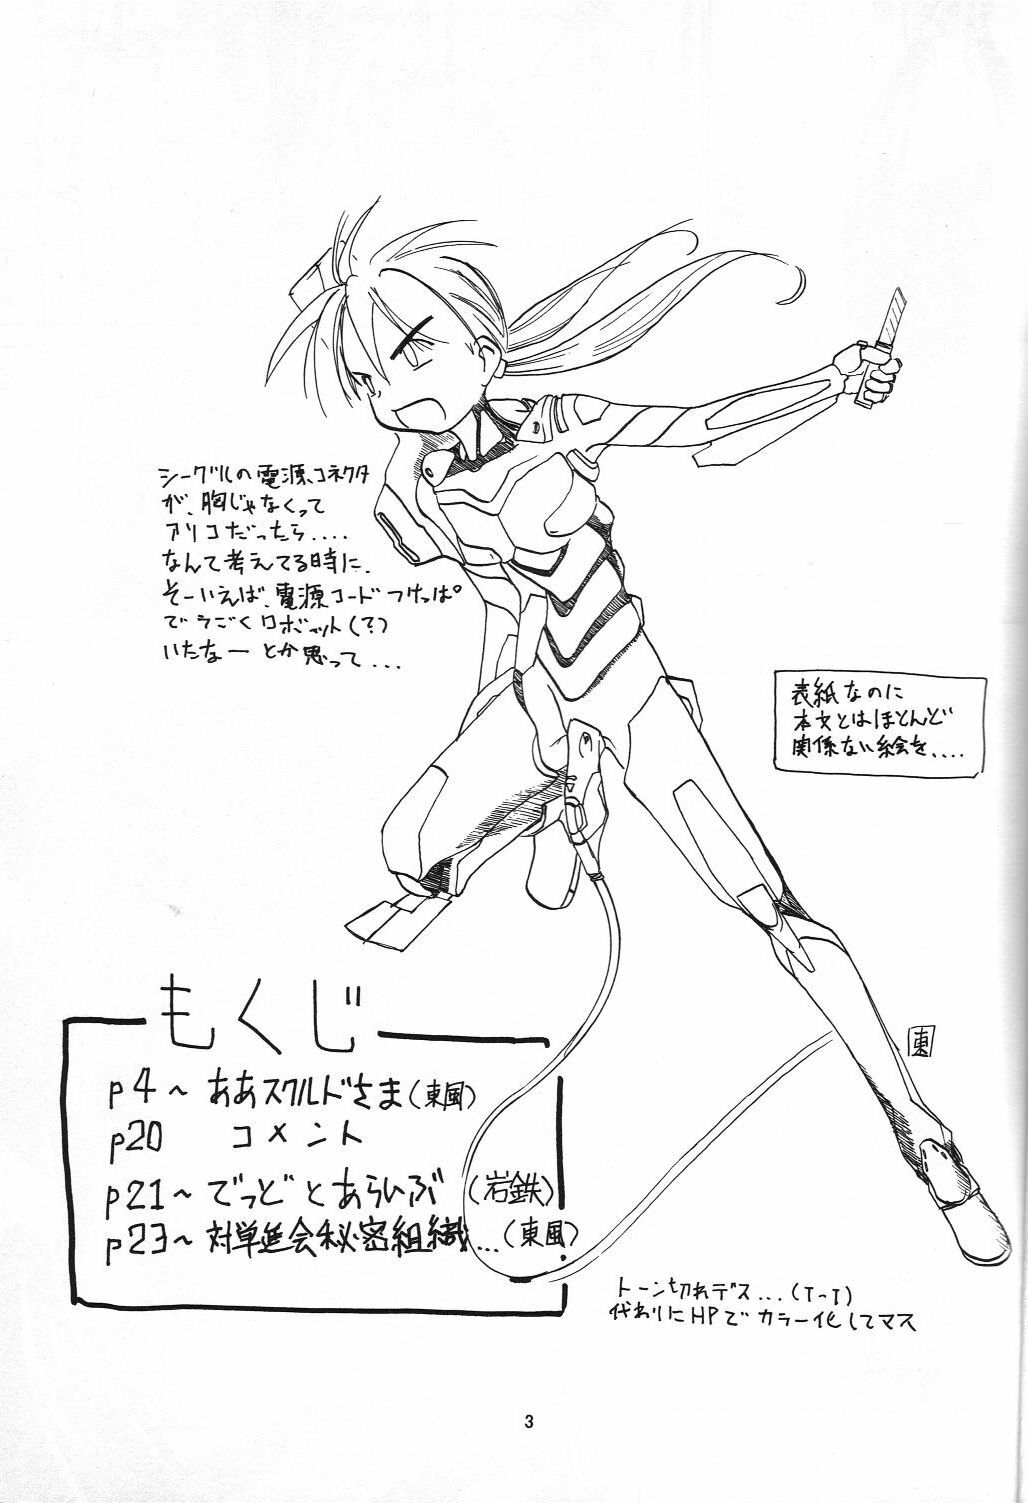 シーグルの電源コネクタ
が、胸じゃなくって
アリコだったら....
なんて考えてる時に、
そーいえば、電源コードつけっぱ
でうごくロボット(?)
いたなー とか思って...
表紙なのに
本文とはほとんど
関係ない絵を....
東
もくじ
p4~ ああスクルドさま(東風)
p20 コメント
p21~ でっどとあらいぶ (岩鉄)
p23~ 対単進会秘密組織...(東風)
トーン切れデス...(T-T)
代わりにHPでカラー化してマス
3